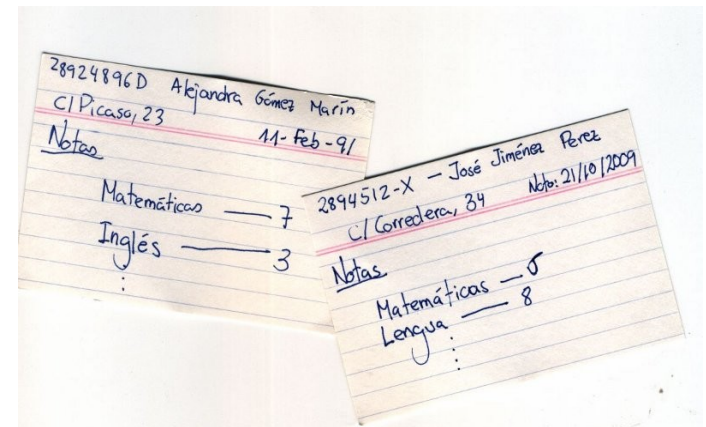 28924896D Alejandra Gómez Marín
C/ Picaso, 23
11-Feb-91
Notas
Matemáticas — 7
Inglés — 3
⋮
2894512-X — José Jiménez Perez
C/ Corredera, 34 Nto: 21/10/2009
Notas
Matemáticas —
Lengua — 8
⋮